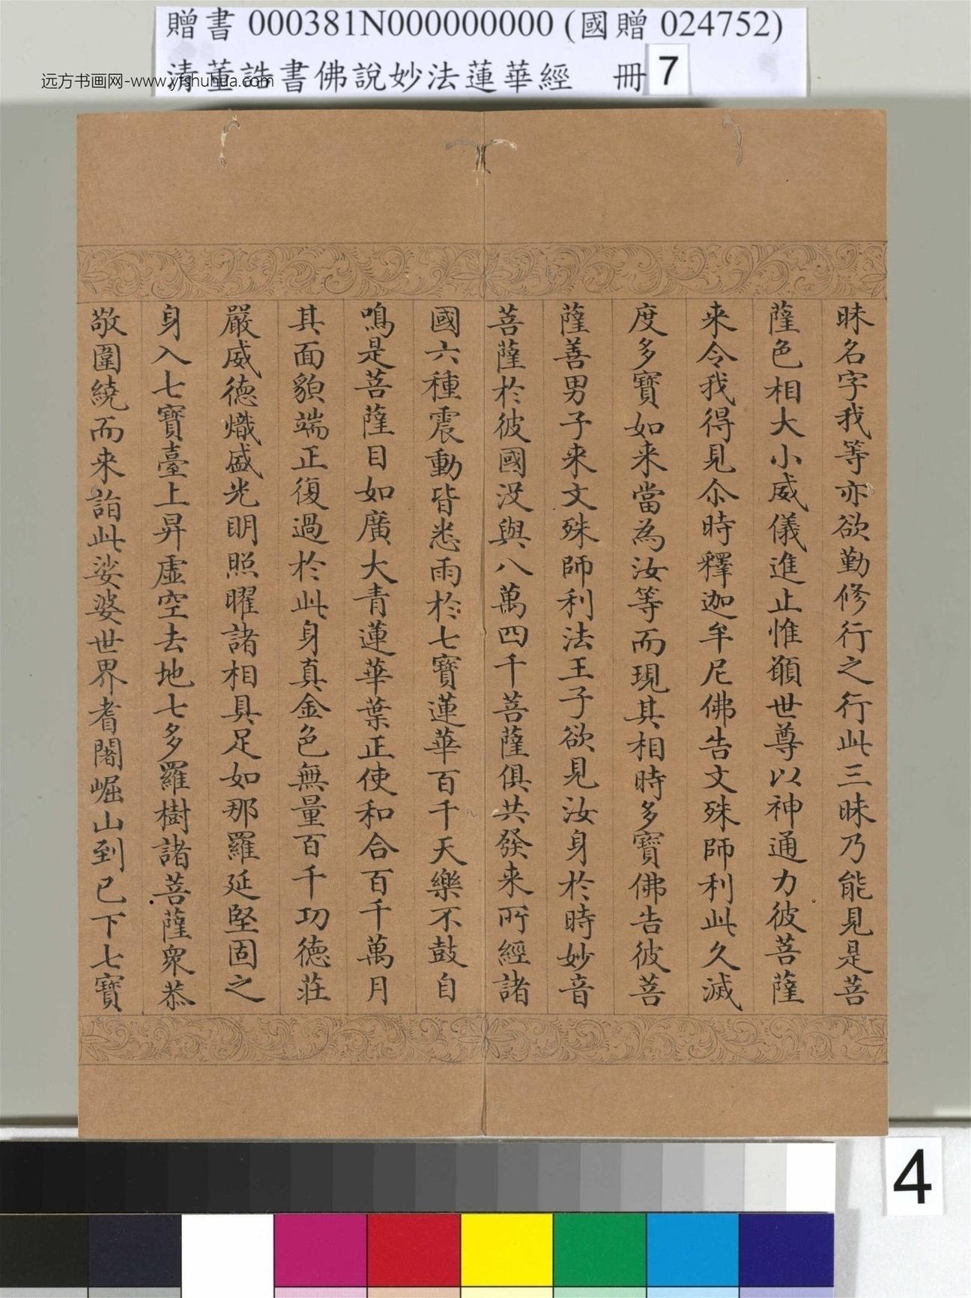 贈書 000381N000000000 (國贈 024752)
清董誥書佛說妙法蓮華經 冊 7
远方书画网-www.yfshuhua.com
昧名字我等亦欲勤修行之行此三昧乃能見是菩
薩色相大小威儀進止惟願世尊以神通力彼菩薩
来令我得見尒時釋迦牟尼佛告文殊師利此久滅
度多寶如来當為汝等而現其相時多寶佛告彼菩
薩善男子来文殊師利法王子欲見汝身於時妙音
菩薩於彼國没與八萬四千菩薩俱共發来所經諸
國六種震動皆悉雨於七寶蓮華百千天樂不鼓自
鳴是菩薩目如廣大青蓮華葉正使和合百千萬月
其面貌端正復過於此身真金色無量百千功德莊
嚴威德熾盛光明照曜諸相具足如那羅延堅固之
身入七寶臺上昇虛空去地七多羅樹諸菩薩衆恭
敬圍繞而来詣此娑婆世界耆闍崛山到已下七寶
4